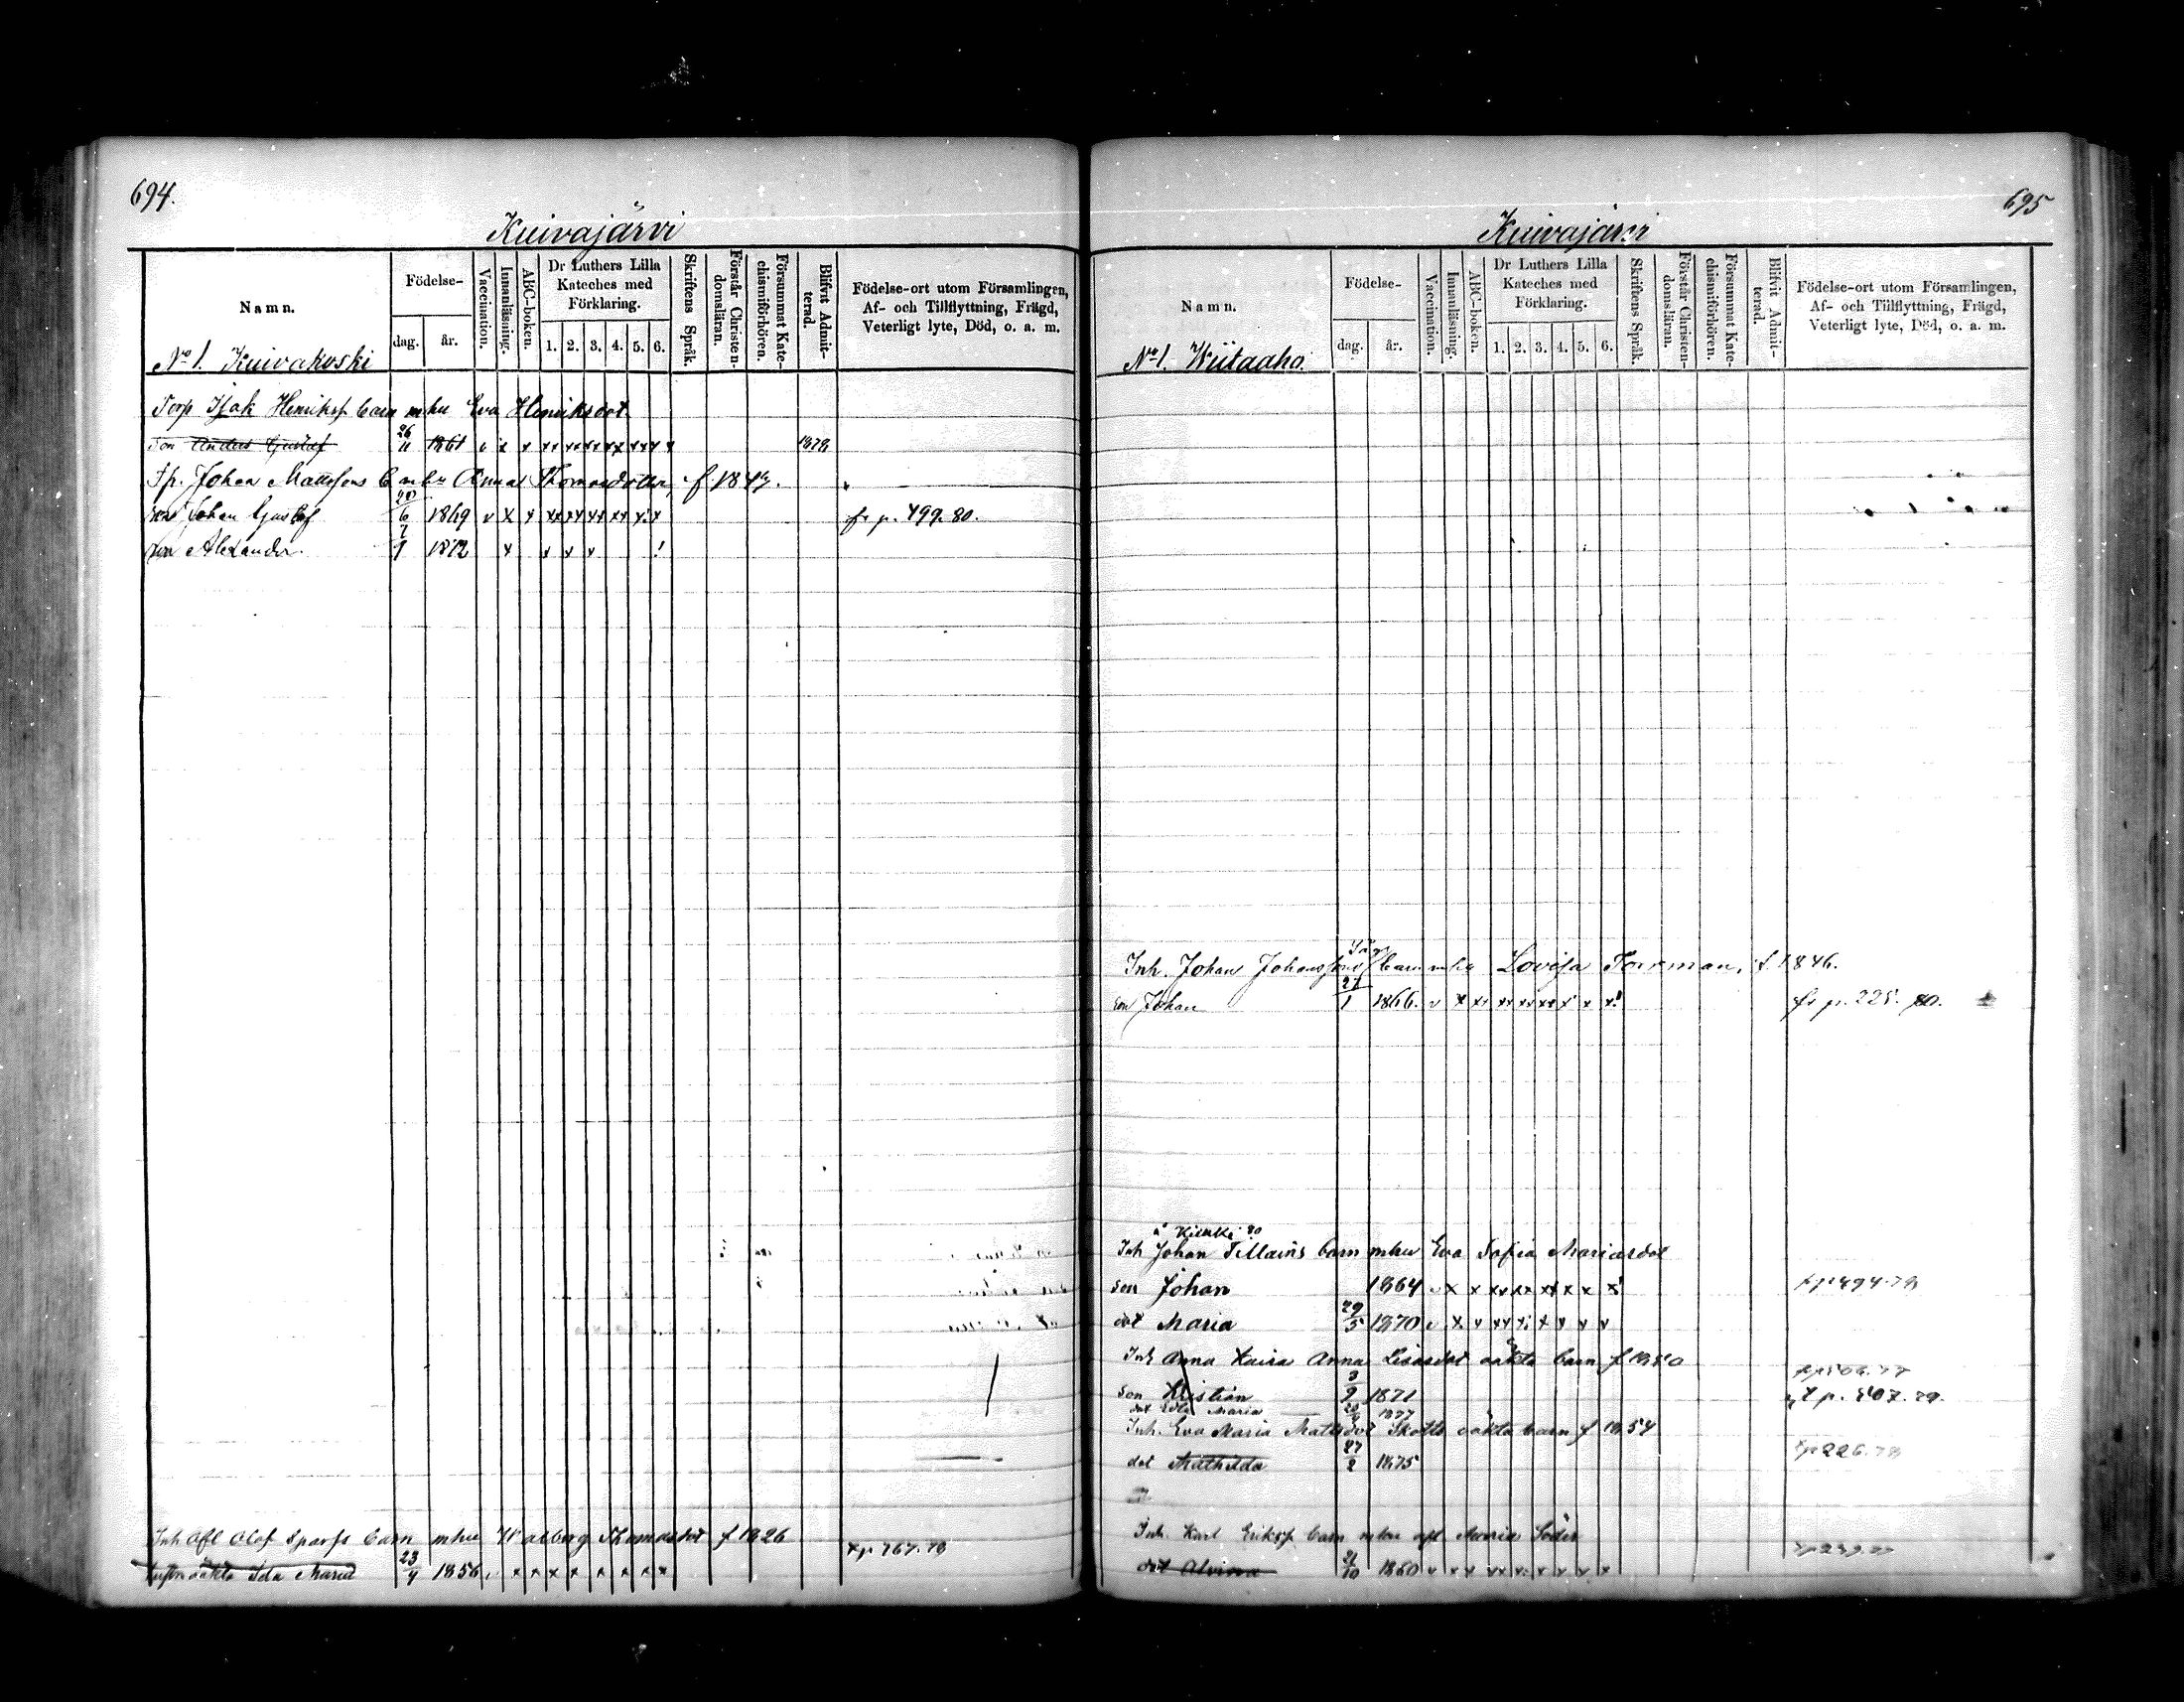 694.
Kuivajärvi
Namn.
Födelse-
dag.
år.
Vaccination.
Innanläsning.
ABC-boken.
Dr Luthers Lilla
Kateches med
Förklaring.
1. 2. 3. 4. 5. 6.
Skriftens Språk.
Förstår Christen-
domsläran.
Försummat Kate-
chismiförhören.
Blifvit Admit-
terad.
Födelse-ort utom Församlingen,
Af- och Tillflyttning, Frägd,
Veterligt lyte, Död, o. a. m.
No 1. Kuivakoski
Torp Isak Henrikss barn mhu Eva Henriksdot
son Anders Gustaf 26/11 1861 v x x xx xx xx xx xx x x 1878
Tp. Johan Mattssons b mhu Anna Thomasdotter, f. 1847.
son Johan Gustaf 1869 v x x xx xx xx xx x! x fr p. 499. 80.
son Alexander. 1872 x x x x !
Inh afl Olof Sparfs barn mhu Walborg Thomasdot f 1826
oäkta Ida Maria 23/4 1856 v x x x x x x x x t p 767. 78
695
Kuivajärvi
Namn.
Födelse-
dag.
år.
Vaccination.
Innanläsning.
ABC-boken.
Dr Luthers Lilla
Kateches med
Förklaring.
1. 2. 3. 4. 5. 6.
Skriftens Språk.
Förstår Christen-
domsläran.
Försummat Kate-
chismiförhören.
Blifvit Admit-
terad.
Födelse-ort utom Församlingen,
Af- och Tillflyttning, Frägd,
Veterligt lyte, Död, o. a. m.
No 1. Wiitaaho.
Inh. Johan Johanssons barn mhu Lovisa Forsman, f. 1846.
son Johan 27/1 1866. v x xx xx xx xx x x x! fr p. 225. 80.
Inh Johan Tillains barn mhu Eva Sofia Mariasdot
son Johan 1864 v x x xx xx xx x x x! 494. 78
dot Maria 29/5 1870 v x x xx x x x x x
Inh Anna Kaisa Anna Lisasdot oäkta barn
son Kristian 3/9 1871 t p. 507. 79.
dot Maria 1877
Inh. Eva Maria Mattsdot Skotts oäkta barn f 1854
dot Mathilda 27/2 1875 226. 78
Inh. Karl Erikss barn mhu afl Maria Söder
dot Alvina 21/10 1860 v x x xx x x x x x